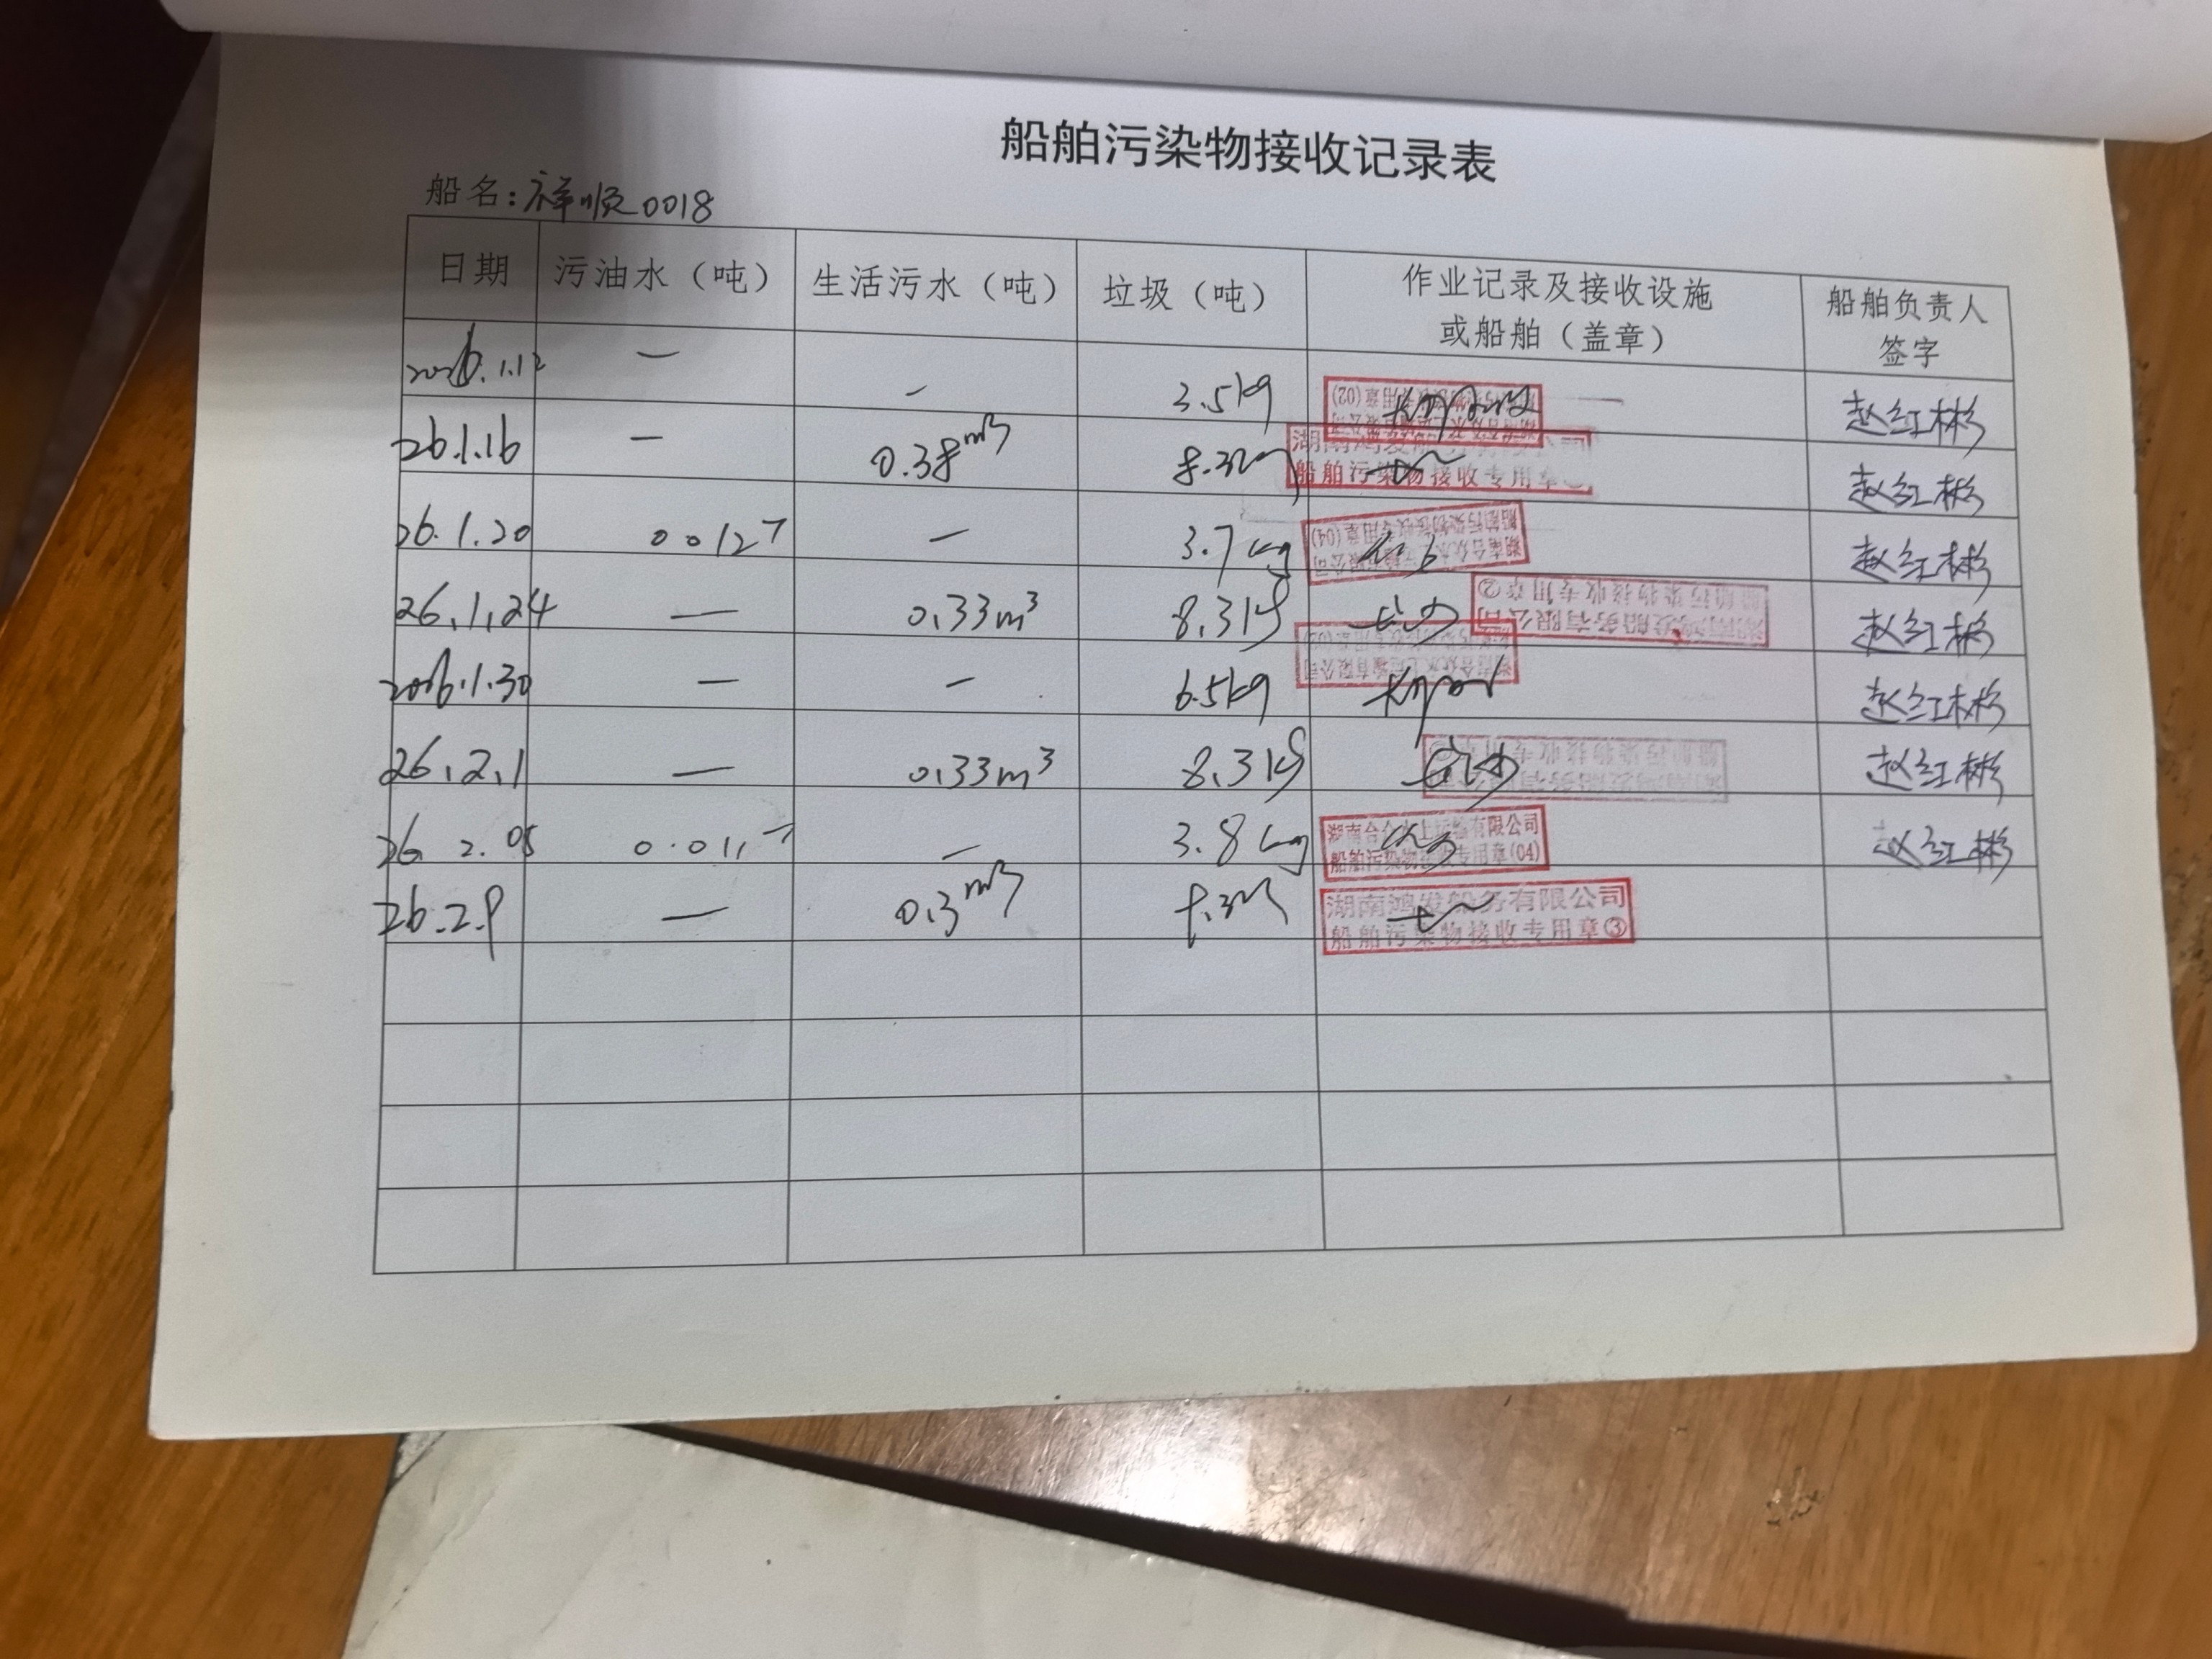 船舶污染物接收记录表
船名：祥顺0018
日期 污油水（吨） 生活污水（吨） 垃圾（吨） 作业记录及接收设施或船舶（盖章） 船舶负责人签字
2026.1.12 — — 3.5kg 赵红彬
26.1.16 — 0.38m³ 8.3kg 船舶污染物接收专用章 赵红彬
26.1.20 0.012T — 3.7kg 船舶污染物接收专用章(04) 赵红彬
26.1.24 — 0.33m³ 8.3kg 湖南鸿发船务有限公司 船舶污染物接收专用章② 赵红彬
2026.1.30 — — 6.5kg 赵红彬
26.2.1 — 0.33m³ 8.3kg 赵红彬
26.2.05 0.011T — 3.8kg 湖南合众水上运输有限公司 船舶污染物接收专用章(04) 赵红彬
26.2.9 — 0.3m³ 8.3kg 湖南鸿发船务有限公司 船舶污染物接收专用章③